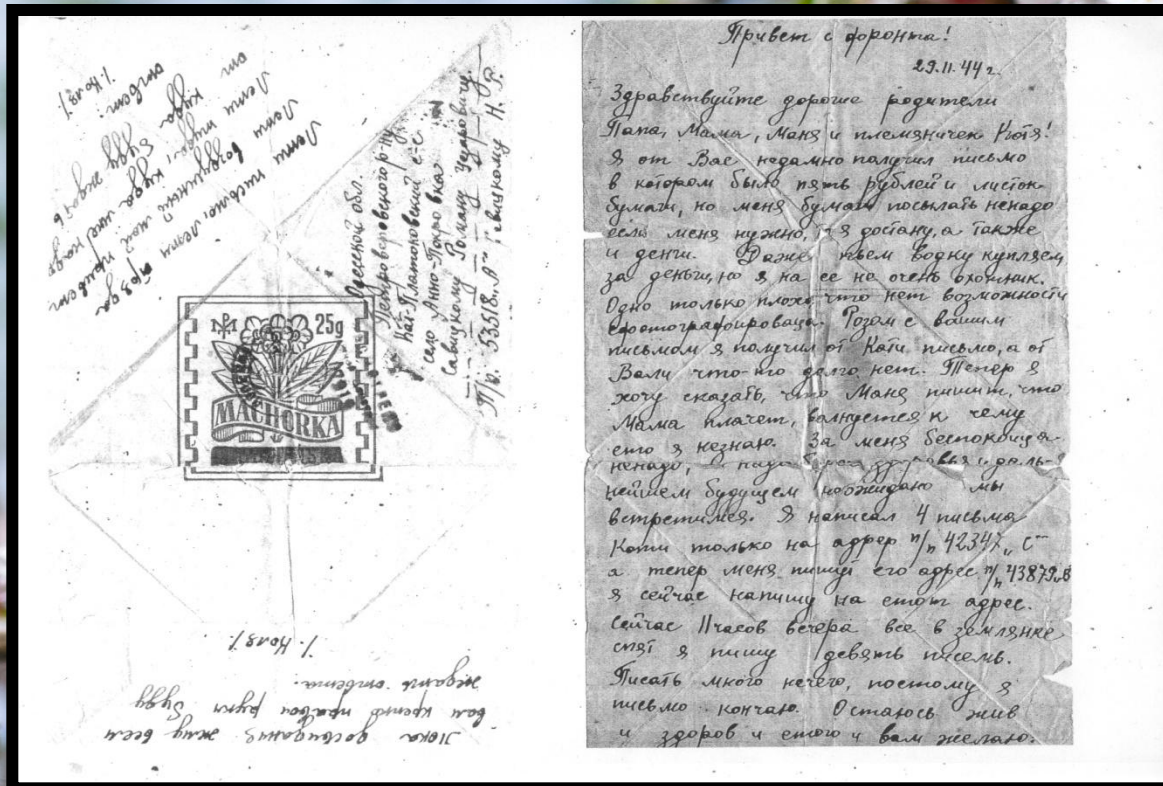 Лети письмо, Лети
Лети воздушный мой привет
Лети туда, куда мне надо
от куда буду ждать
ответ:
/Коля/
Одесской обл.
Петроверовского р-ну
Кат-Платоновский с-с
село Анно-Покровка
Савицкому Роману
П/п. 53518 „А“ Савицкому Н. Р.
25g
MACHORKA
Пока досвидания жму всем
вам крепко правой руки буду
ждать ответа.
/. Коля/.
Привет с фронта!
29.11.44 г.
Здравствуйте дорогие родители
Папа, Мама, Маня и племяничек Котя!
Я от Вас недавно получил письмо
в котором было пять рублей и листок
бумаги, но меня бумаги посылать ненадо
если меня нужно, я достану, а также
и денги. Даже пьем водку купляем
за деньги, но я на ее не очень охотник.
Одно только плохо что нет возможности
сфотографироваца. Розом с вашим
письмом я получил от Кати письмо, а от
Вали что-то долго нет. Тепер я
хочу сказать, что Маня пишит, что
Мама плачет, валнуется к чему
ето я незнаю. За меня беспокоица
ненадо, и надо здоровья и даль-
нейшем будущем мы
встретимся. Я написал 4 письма
Коти только на адрер п/п 42347 „С“
а тепер меня пишут его адрес п/п 43879 „В
я сейчас напишу на етот адрес.
Сейчас 11 часов вечера все в землянке
спят я пишу девять писемь.
Писать много нечего, поетому я
письмо кончаю. Остаюсь жив
и здоров и етого и вам желаю.